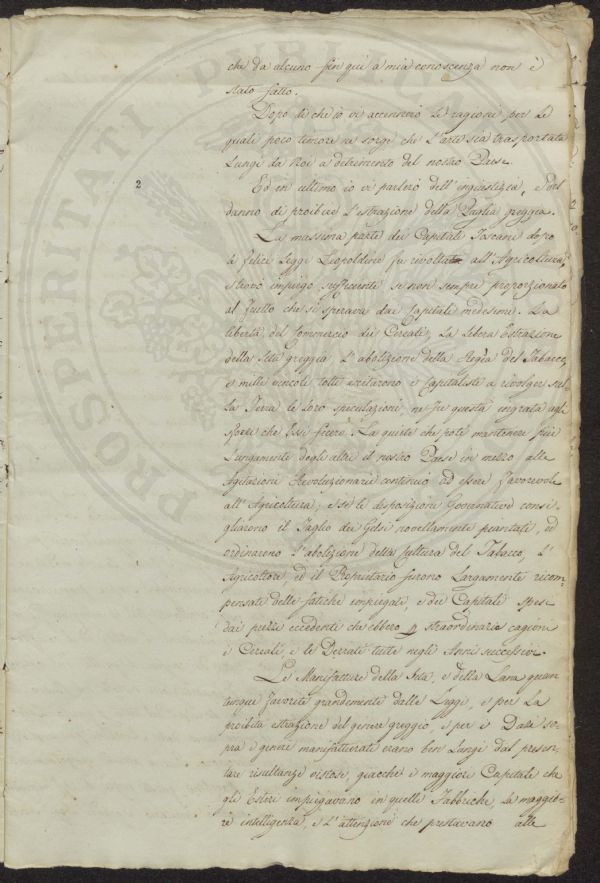 che da alcuno fin quì a mia conoscenza non è
stato fatto.
Dopo di che io vi accennerò le ragioni per le
quali poco timore ne sorge che l'arte sia trasportata
lungi da Noi a detrimento del nostro Paese.
Ed in ultimo io vi parlerò dell'ingiustizia, e del
danno di proibire l'estrazione della Paglia greggia.
La massima parte dei Capitali Toscani dopo
le felici Leggi Leopoldine fu rivoltata all'Agricoltura,
e trovò impiego sufficiente se non sempre proporzionato
al frutto che si sperava dai Capitali medesimi. La
libertà del Commercio dei Cereali; La libera Estrazione
della Seta greggia, L'abolizione della Regìa del Tabacco,
e mille vincoli tolti eccitarono i Capitalisti a rivolger sul-
la Terra le loro speculazioni, ne fu questa ingrata agli
sforzi che Essi fecero. La quiete che potè mantenere più
lungamente degli altri il nostro Paese in mezzo alle
Agitazioni Revoluzionarie continuò ad essere favorevole
all'Agricoltura; e se le disposizioni Governative consi-
gliarono il Taglio dei Gelsi novellamente piantati, ed
ordinarono l'abolizione della Cultura del Tabacco, L'
Agricoltore, ed il Proprietario furono largamente ricom-
pensati delle fatiche impiegate, e dei Capitali spesi
dai prezzi eccedenti che ebbero p straordinarie cagioni
i Cereali, e le Derrate tutte negli Anni successivi.
Le Manifatture della Seta, e della Lana quan-
tunque favorite grandemente dalle Leggi, e per La
proibita estrazione del genere greggio, e per i Dazi so-
pra i generi manifatturati erano ben lungi dal presen-
tare risultanze vistose, giacchè i maggiori Capitali che
gli Esteri impiegavano in quelle Fabbriche, la maggio-
re intelligenza, e L'attenzione che prestavano alle
2
PROSPERITATI PUBLICAE